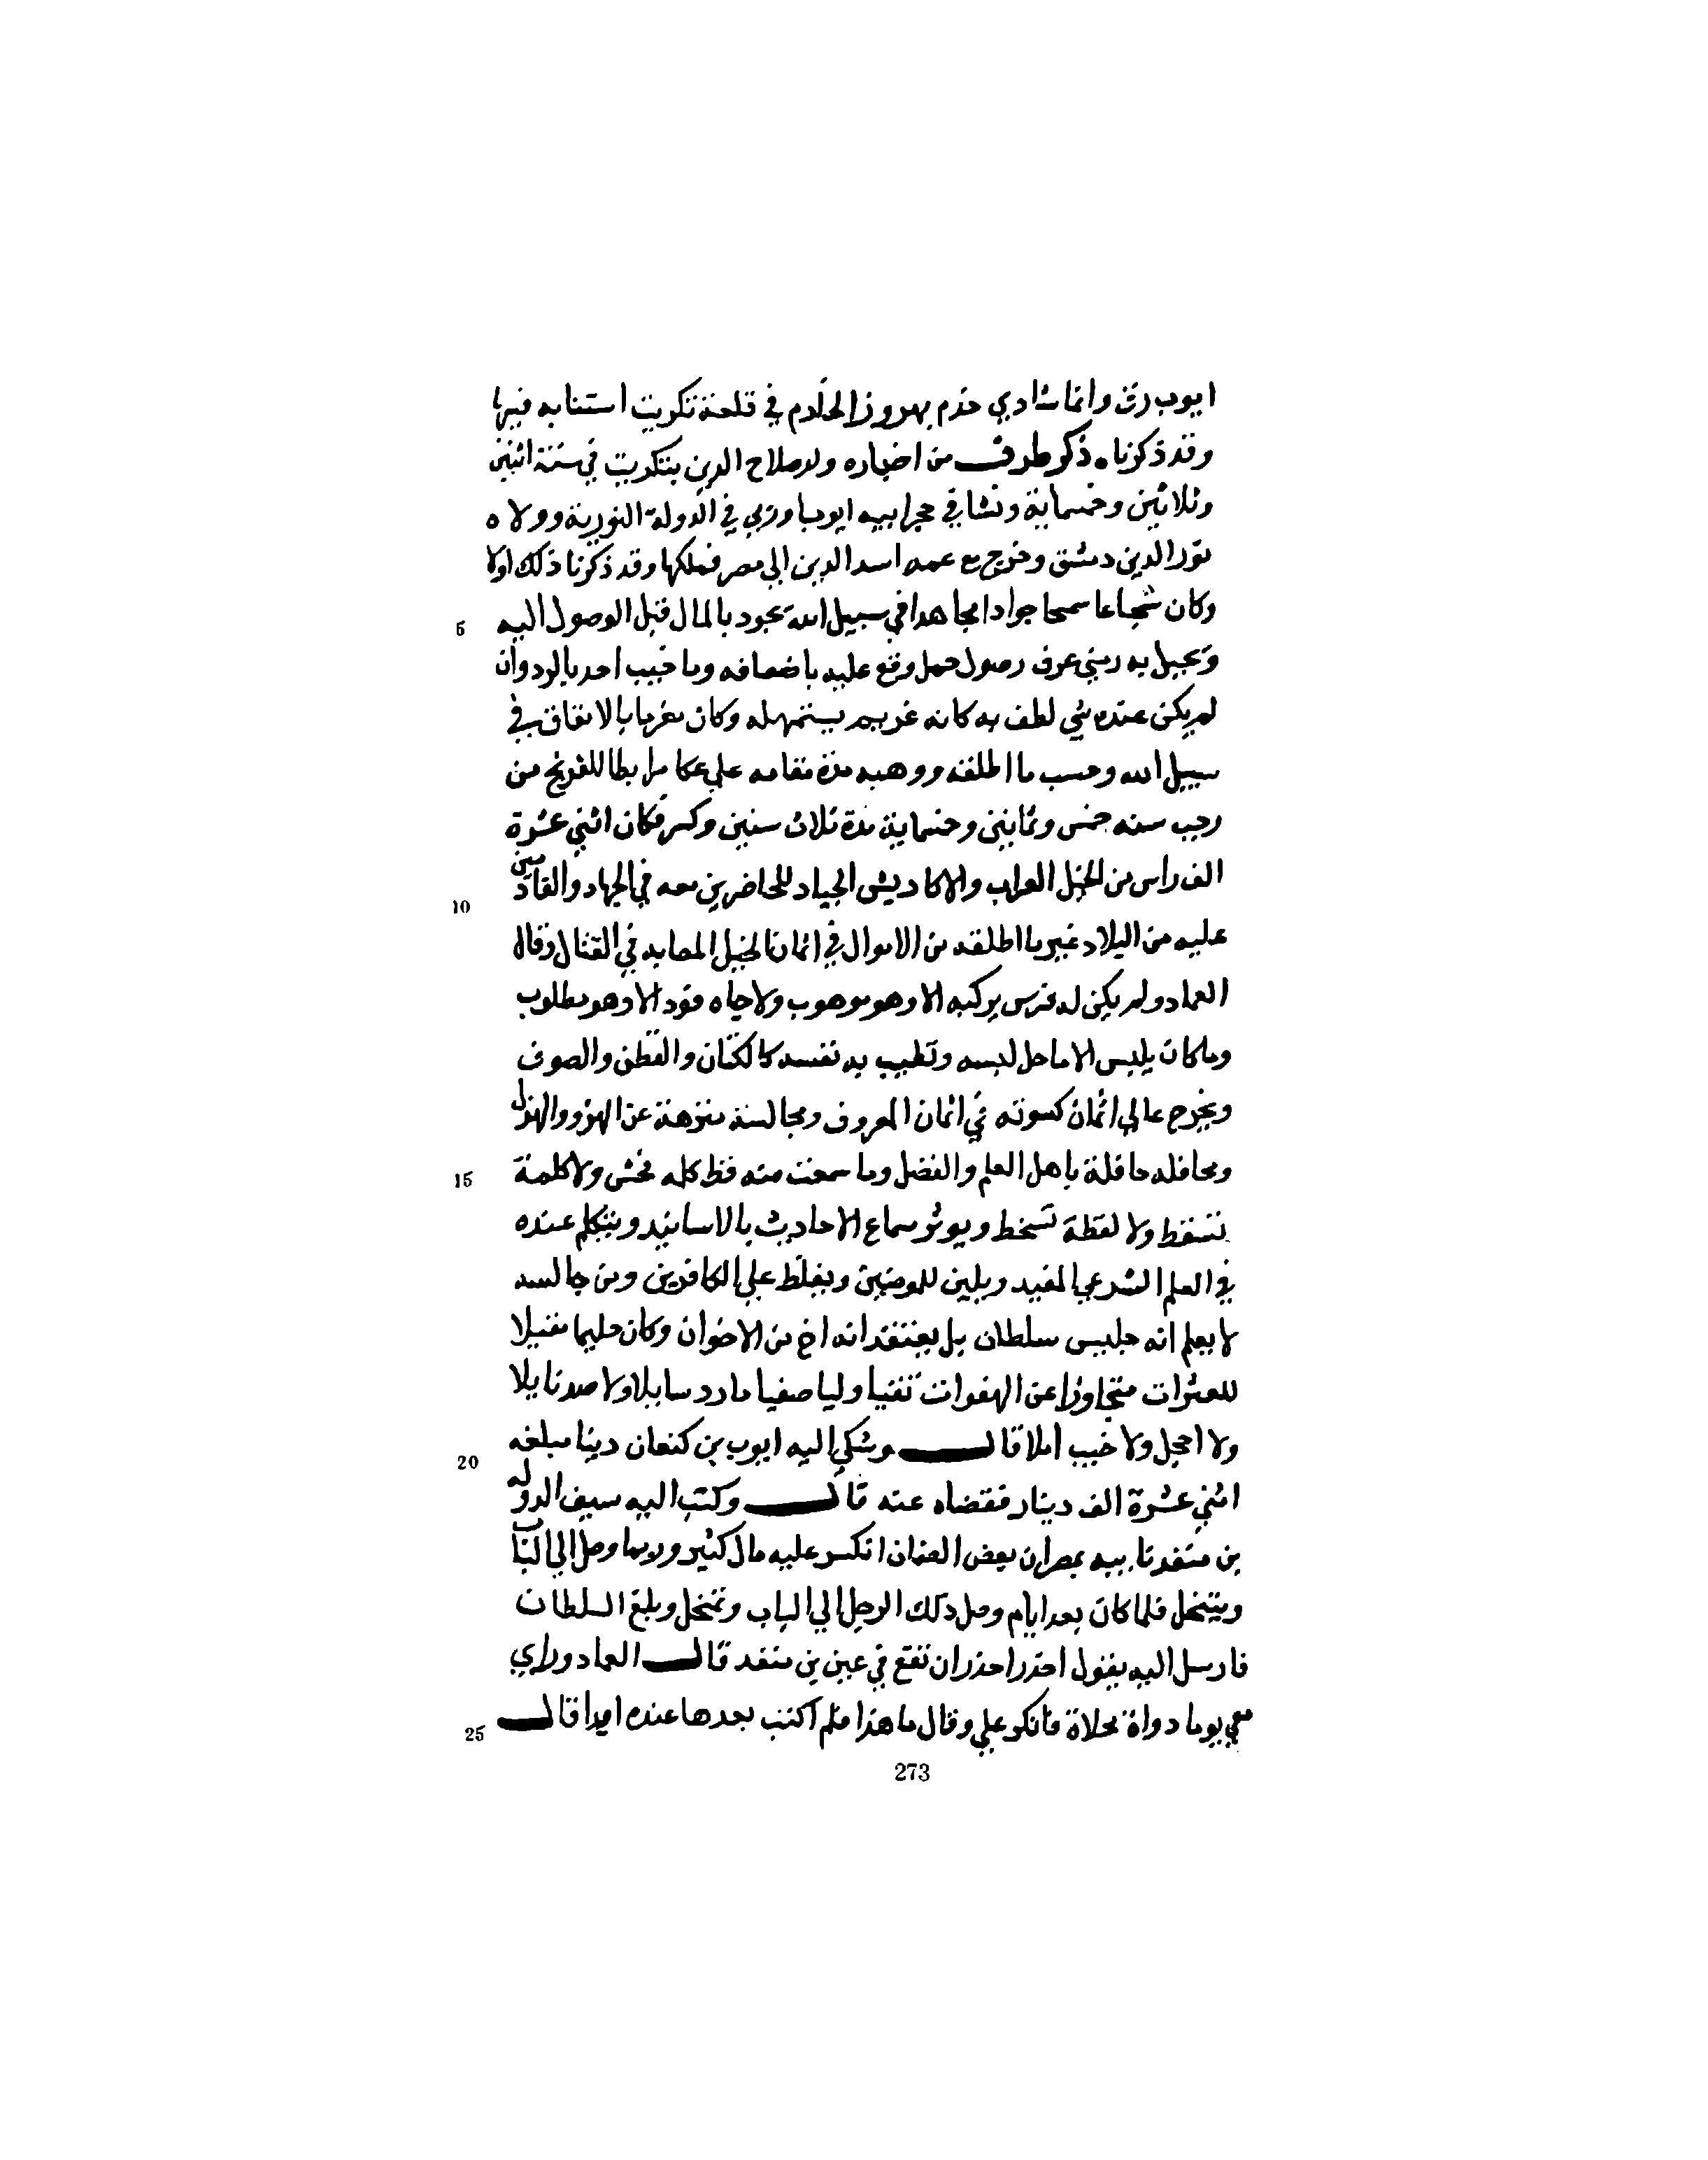 ايوب رق وانما شادي خدم بهروز الخادم في قلعة تكريت استنابه فيها
وقد ذكرناه ذكر طرف من اخباره ولد صلاح الدين بتكريت في سنة اثنين
وثلاثين وخمسماية ونشا في حجر ابيه ايوب وربي في الدولة النورية وولاه
نور الدين دمشق وخرج مع عمه اسد الدين الي مصر فملكها وقد ذكرنا ذلك اولا
وكان شجاعا سمحا جوادا مجاهدا في سبيل الله يجود بالمال قبل الوصول اليه
5
ويحيل به ومتي عرف وصول حمل وقع عليه باضعافه وما خيب احد بالرد وان
لم يكن عنده شي لطف به كانه غريم يستمهله وكان مغرما بالانفاق في
سبيل الله وحسب ما اطلقه ووهبه مدة مقامه علي عكا مرابطا للفرنج من
رجب سنه خمس وثمانين وخمسماية مدة ثلاث سنين وكسر فكان اثني عشرة
الف راس من الخيل العراب والاكاديش الجياد للحاضرين معه في الجهاد والقادمين
10
عليه من البلاد غير ما اطلقه من الاموال في اثمان الخيل المصابه في القتال وقال
العماد ولم يكن له فرس يركبه الا وهو موهوب ولا جاه قود الا وهو مطلوب
وما كان يلبس الا ما حل لبسه وتطيب به نفسه كالكتان والقطن والصوف
ويخرج عالي اثمان كسوته في اثمان المعروف ومجالسة منزهة عن الهزو والهزل
ومحافله حافلة باهل العلم والفضل وما سمعت منه قط كله فحش ولا كلمة
15
تسقط ولا لفظة تسخط ويوثر سماع الاحاديث بالاسانيد ويتكلم عنده
في العلم الشرعي المفيد ويلين للمومنين ويغلظ علي الكافرين ومن جالسه
لا يعلم انه جليس سلطان بل يعتقد انه اخ من الاخوان وكان حليما مقيلا
للعثرات متجاوزا عن الهفوات تقيا وليا صفيا ما رد سايلا ولا صد نايلا
ولا اخجل ولا خيب املا قال وشكي اليه ايوب بن كنعان دينا مبلغه
20
اثني عشرة الف دينار فقضاه عنه قال وكتب اليه سيف الدوله
بن منقد نايبه بمصر ان بعض الضمان انكسر عليه مال كثير وربما وصل الي الباب
ويتمحل فلما كان بعد ايام وصل ذلك الرجل الي الباب وتمحل وبلغ السلطان
فارسل اليه يقول احذر احذر ان تقع في عين بن منقد قال العماد وراي
معي يوما دواة محلاة فانكر علي وقال ما هذا فلم اكتب بعدها عنده ابدا قال
25
273